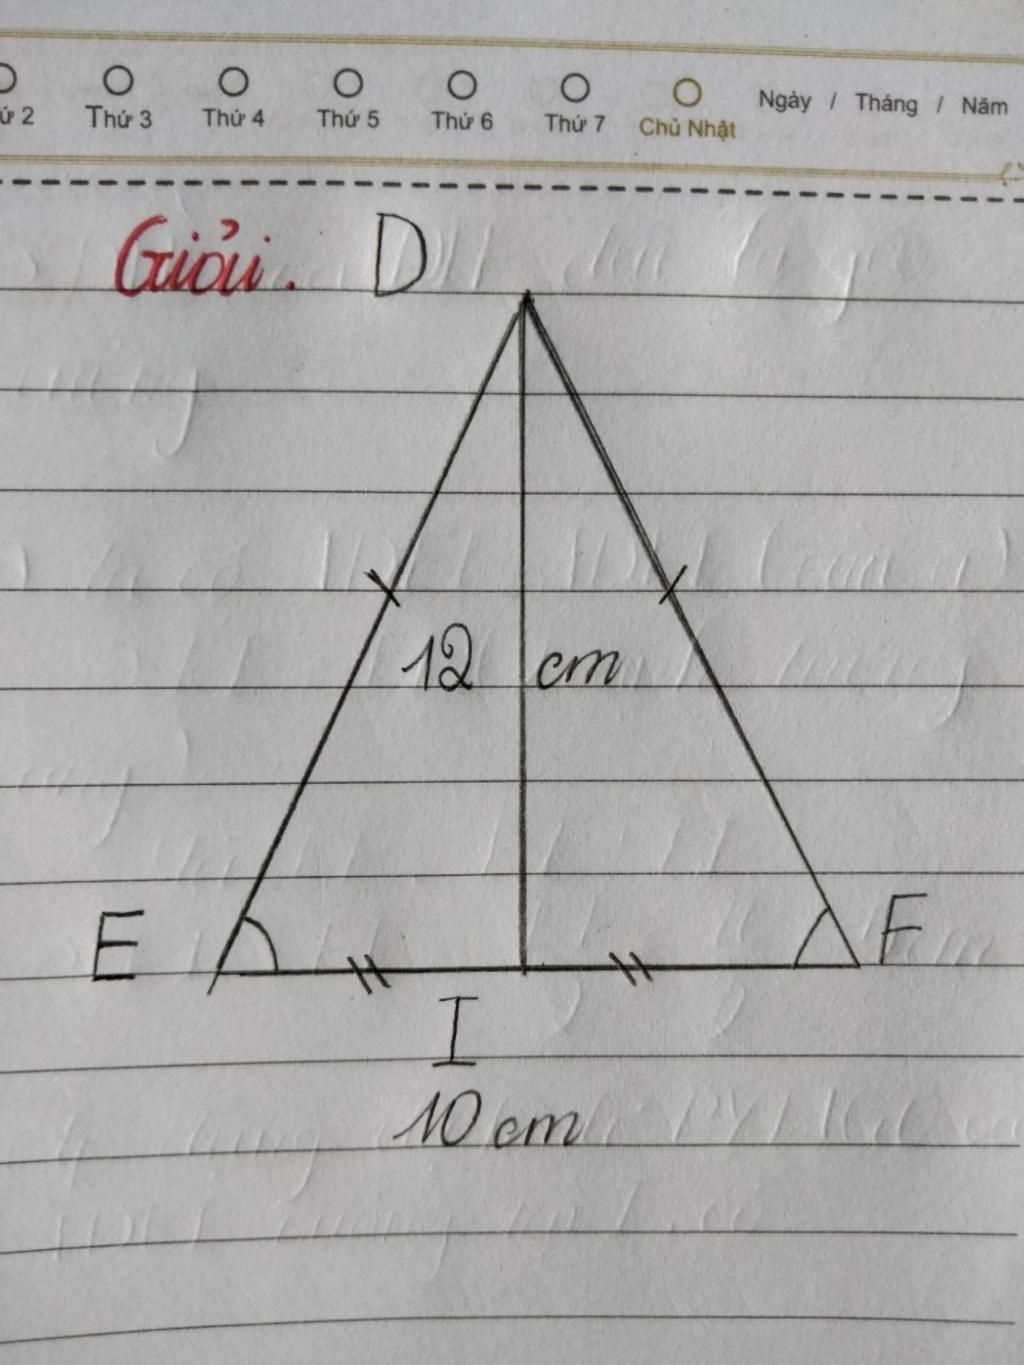 Thứ 3 Thứ 4 Thứ 5 Thứ 6 Thứ 7 Chủ Nhật Ngày / Tháng / Năm
Giải. D
12 cm
E F
I
10 cm